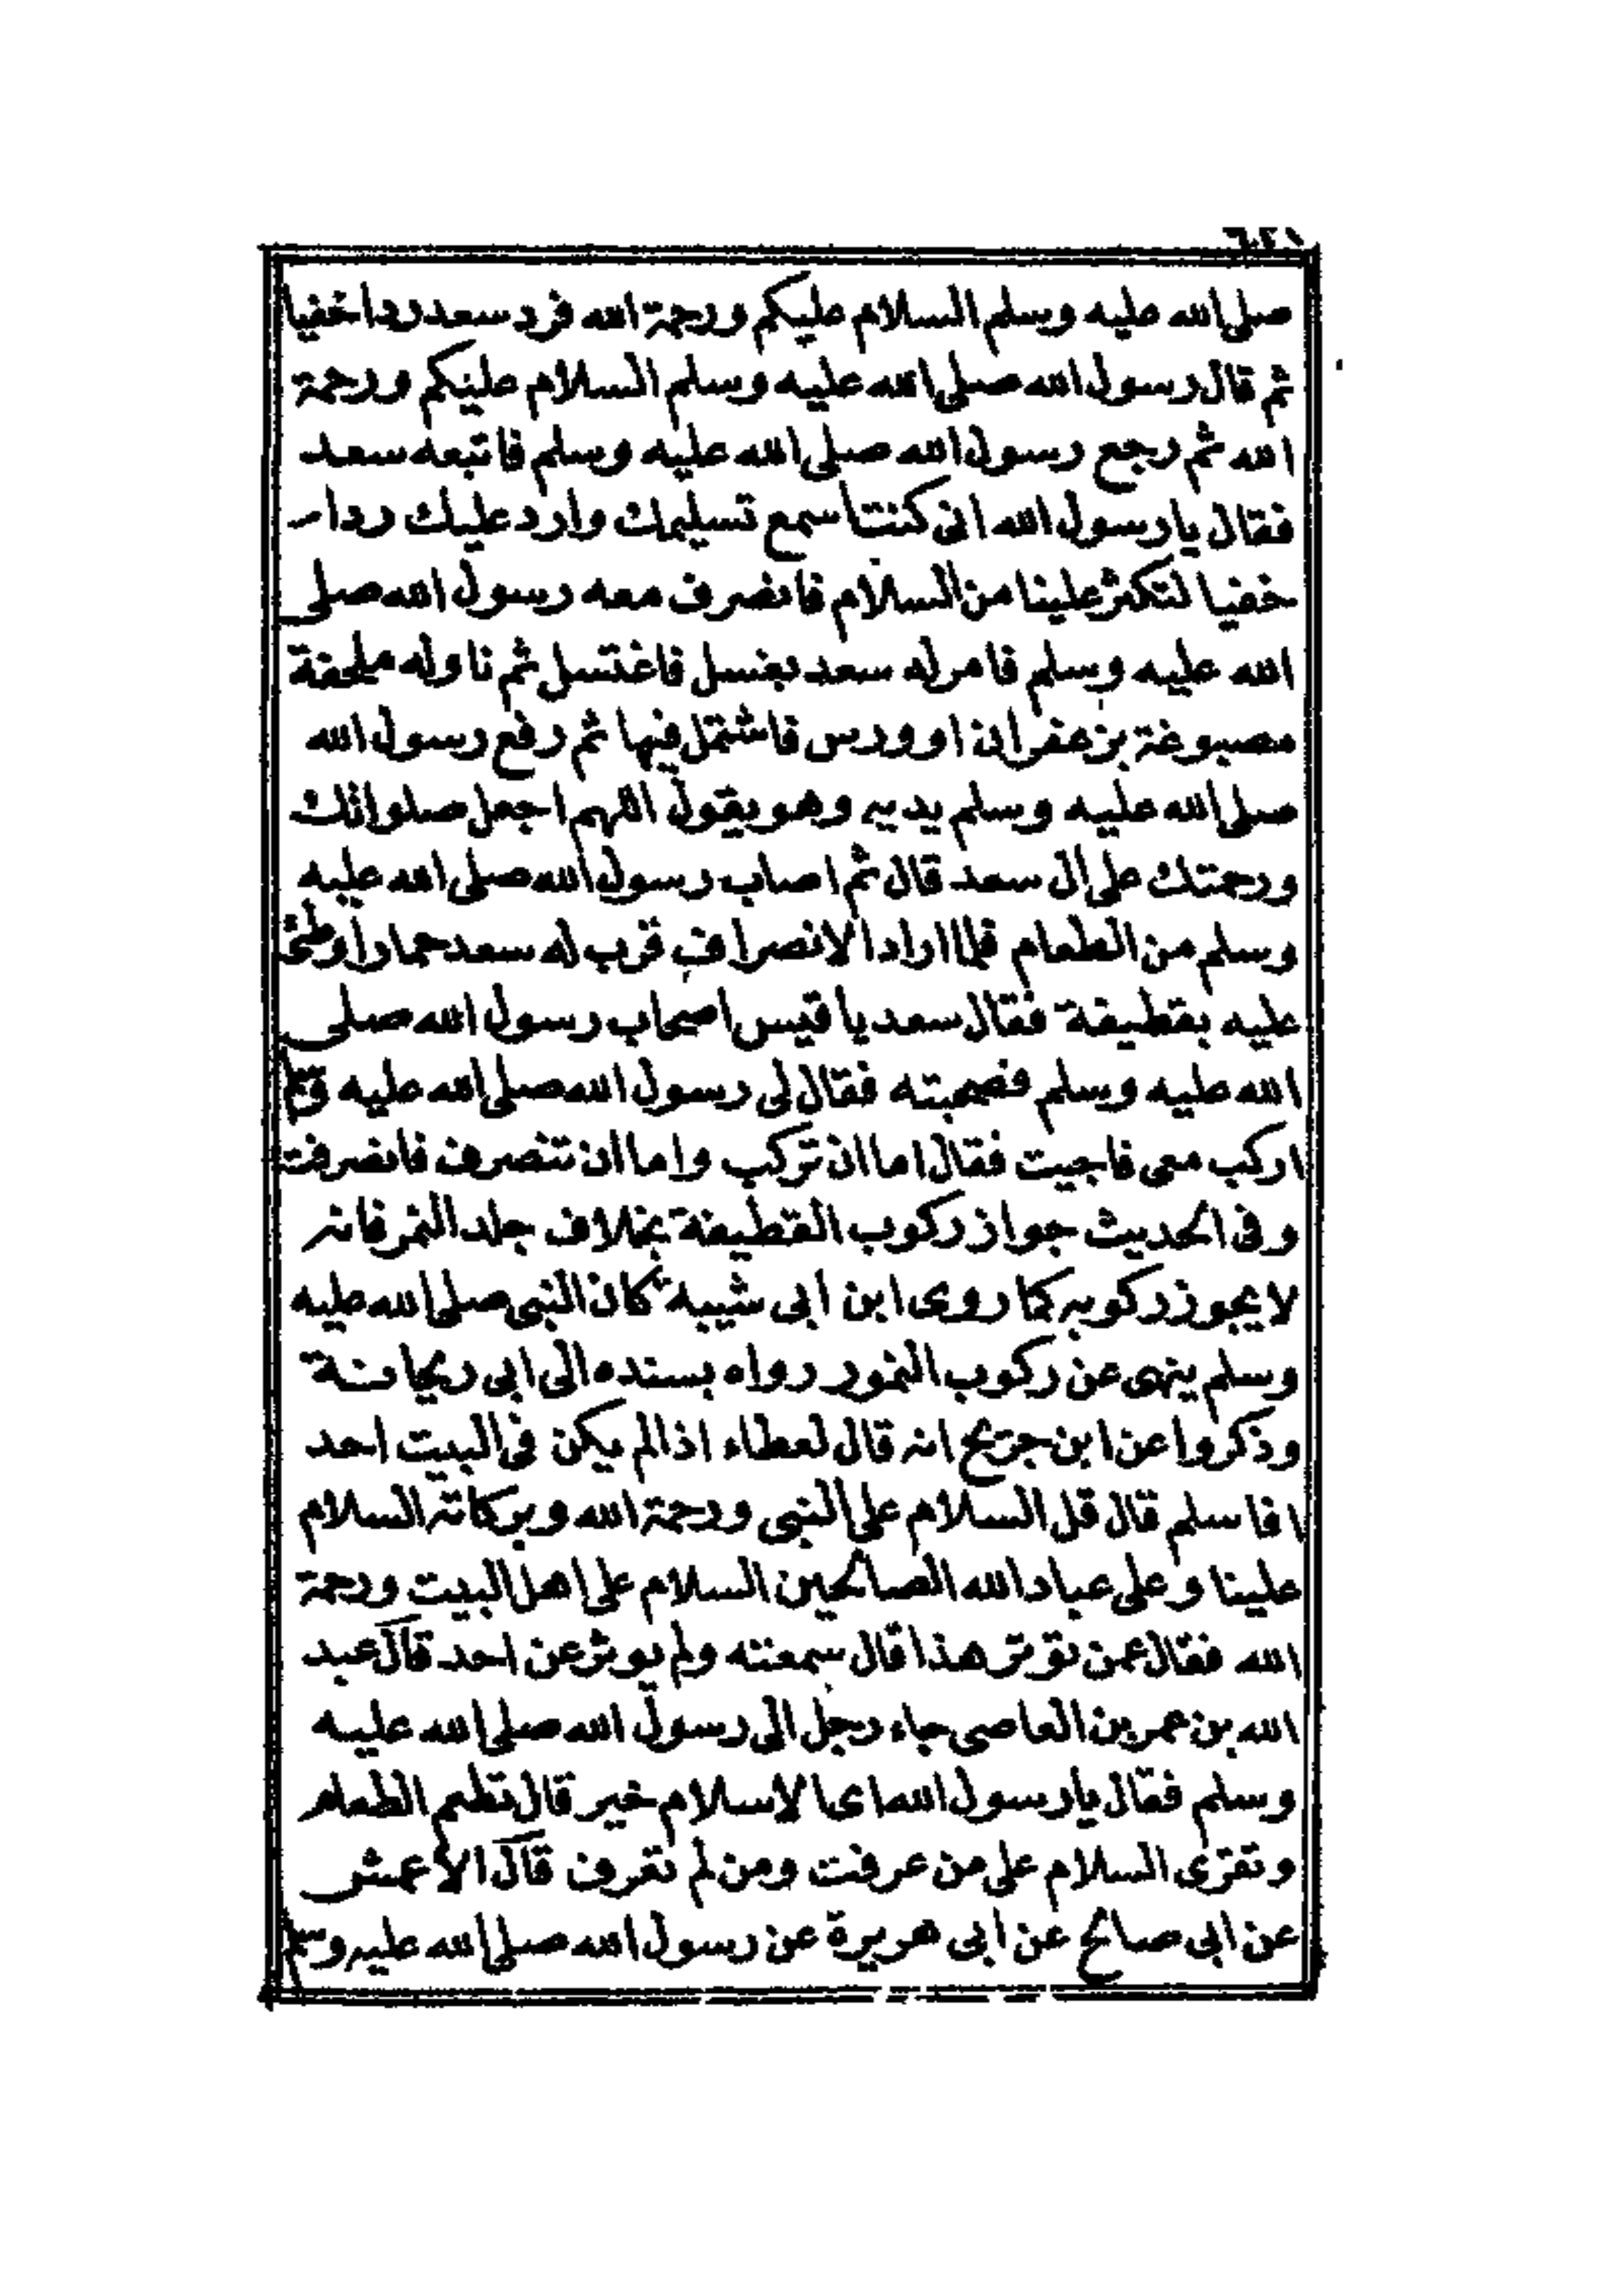 صلى الله عليه وسلم السلام عليكم ورحمة الله فرد سعد ردا خفيا
ثم قال رسول الله صلى الله عليه وسلم السلام عليكم ورحمة
الله ثم رجع رسول الله صلى الله عليه وسلم فاتبعه سعد
فقال يا رسول الله انى كنت اسمع تسليمك وارد عليك ردا
خفيا لتكثر علينا من السلام فانصرف معه رسول الله صلى
الله عليه وسلم فامر له سعد بغسل فاغتسل ثم ناوله ملحفة
مصبوغة بزعفران او ورس فاشتمل فيها ثم رفع رسول الله
صلى الله عليه وسلم يديه وهو يقول اللهم اجعل صلواتك
ورحمتك على ال سعد قال ثم اصاب رسول الله صلى الله عليه
وسلم من الطعام فلما اراد الانصراف قرب له سعد حمارا وطئ
عليه بقطيفة فقال سعد يا قيس اصحاب رسول الله صلى
الله عليه وسلم فصحبته فقال لى رسول الله صلى الله عليه وسلم
اركب معى فابيت فقال اما ان تركب واما ان تنصرف فانصرفت
وفى الحديث جواز ركوب القطيفة بخلاف جلد النمر فانه
لا يجوز ركوبه كما روى ابن ابى شيبة كان النبى صلى الله عليه
وسلم ينهى عن ركوب النمور رواه بسنده الى ابى ريحانة
وذكروا عن ابن جريج انه قال لعطاء اذا لم يكن فى البيت احد
افاسلم قال قل السلام على النبى ورحمة الله وبركاته السلام
علينا وعلى عباد الله الصالحين السلام على اهل البيت ورحمة
الله فقال عمن تؤثر هذا قال سمعته ولم يوثر عن احد قال عبد
الله بن عمر بن العاصى جاء رجل الى رسول الله صلى الله عليه
وسلم فقال يا رسول الله اى الاسلام خير قال تطعم الطعام
وتقرى السلام على من عرفت ومن لم تعرف قال الاعمش
عن ابى صالح عن ابى هريرة عن رسول الله صلى الله عليه وسلم